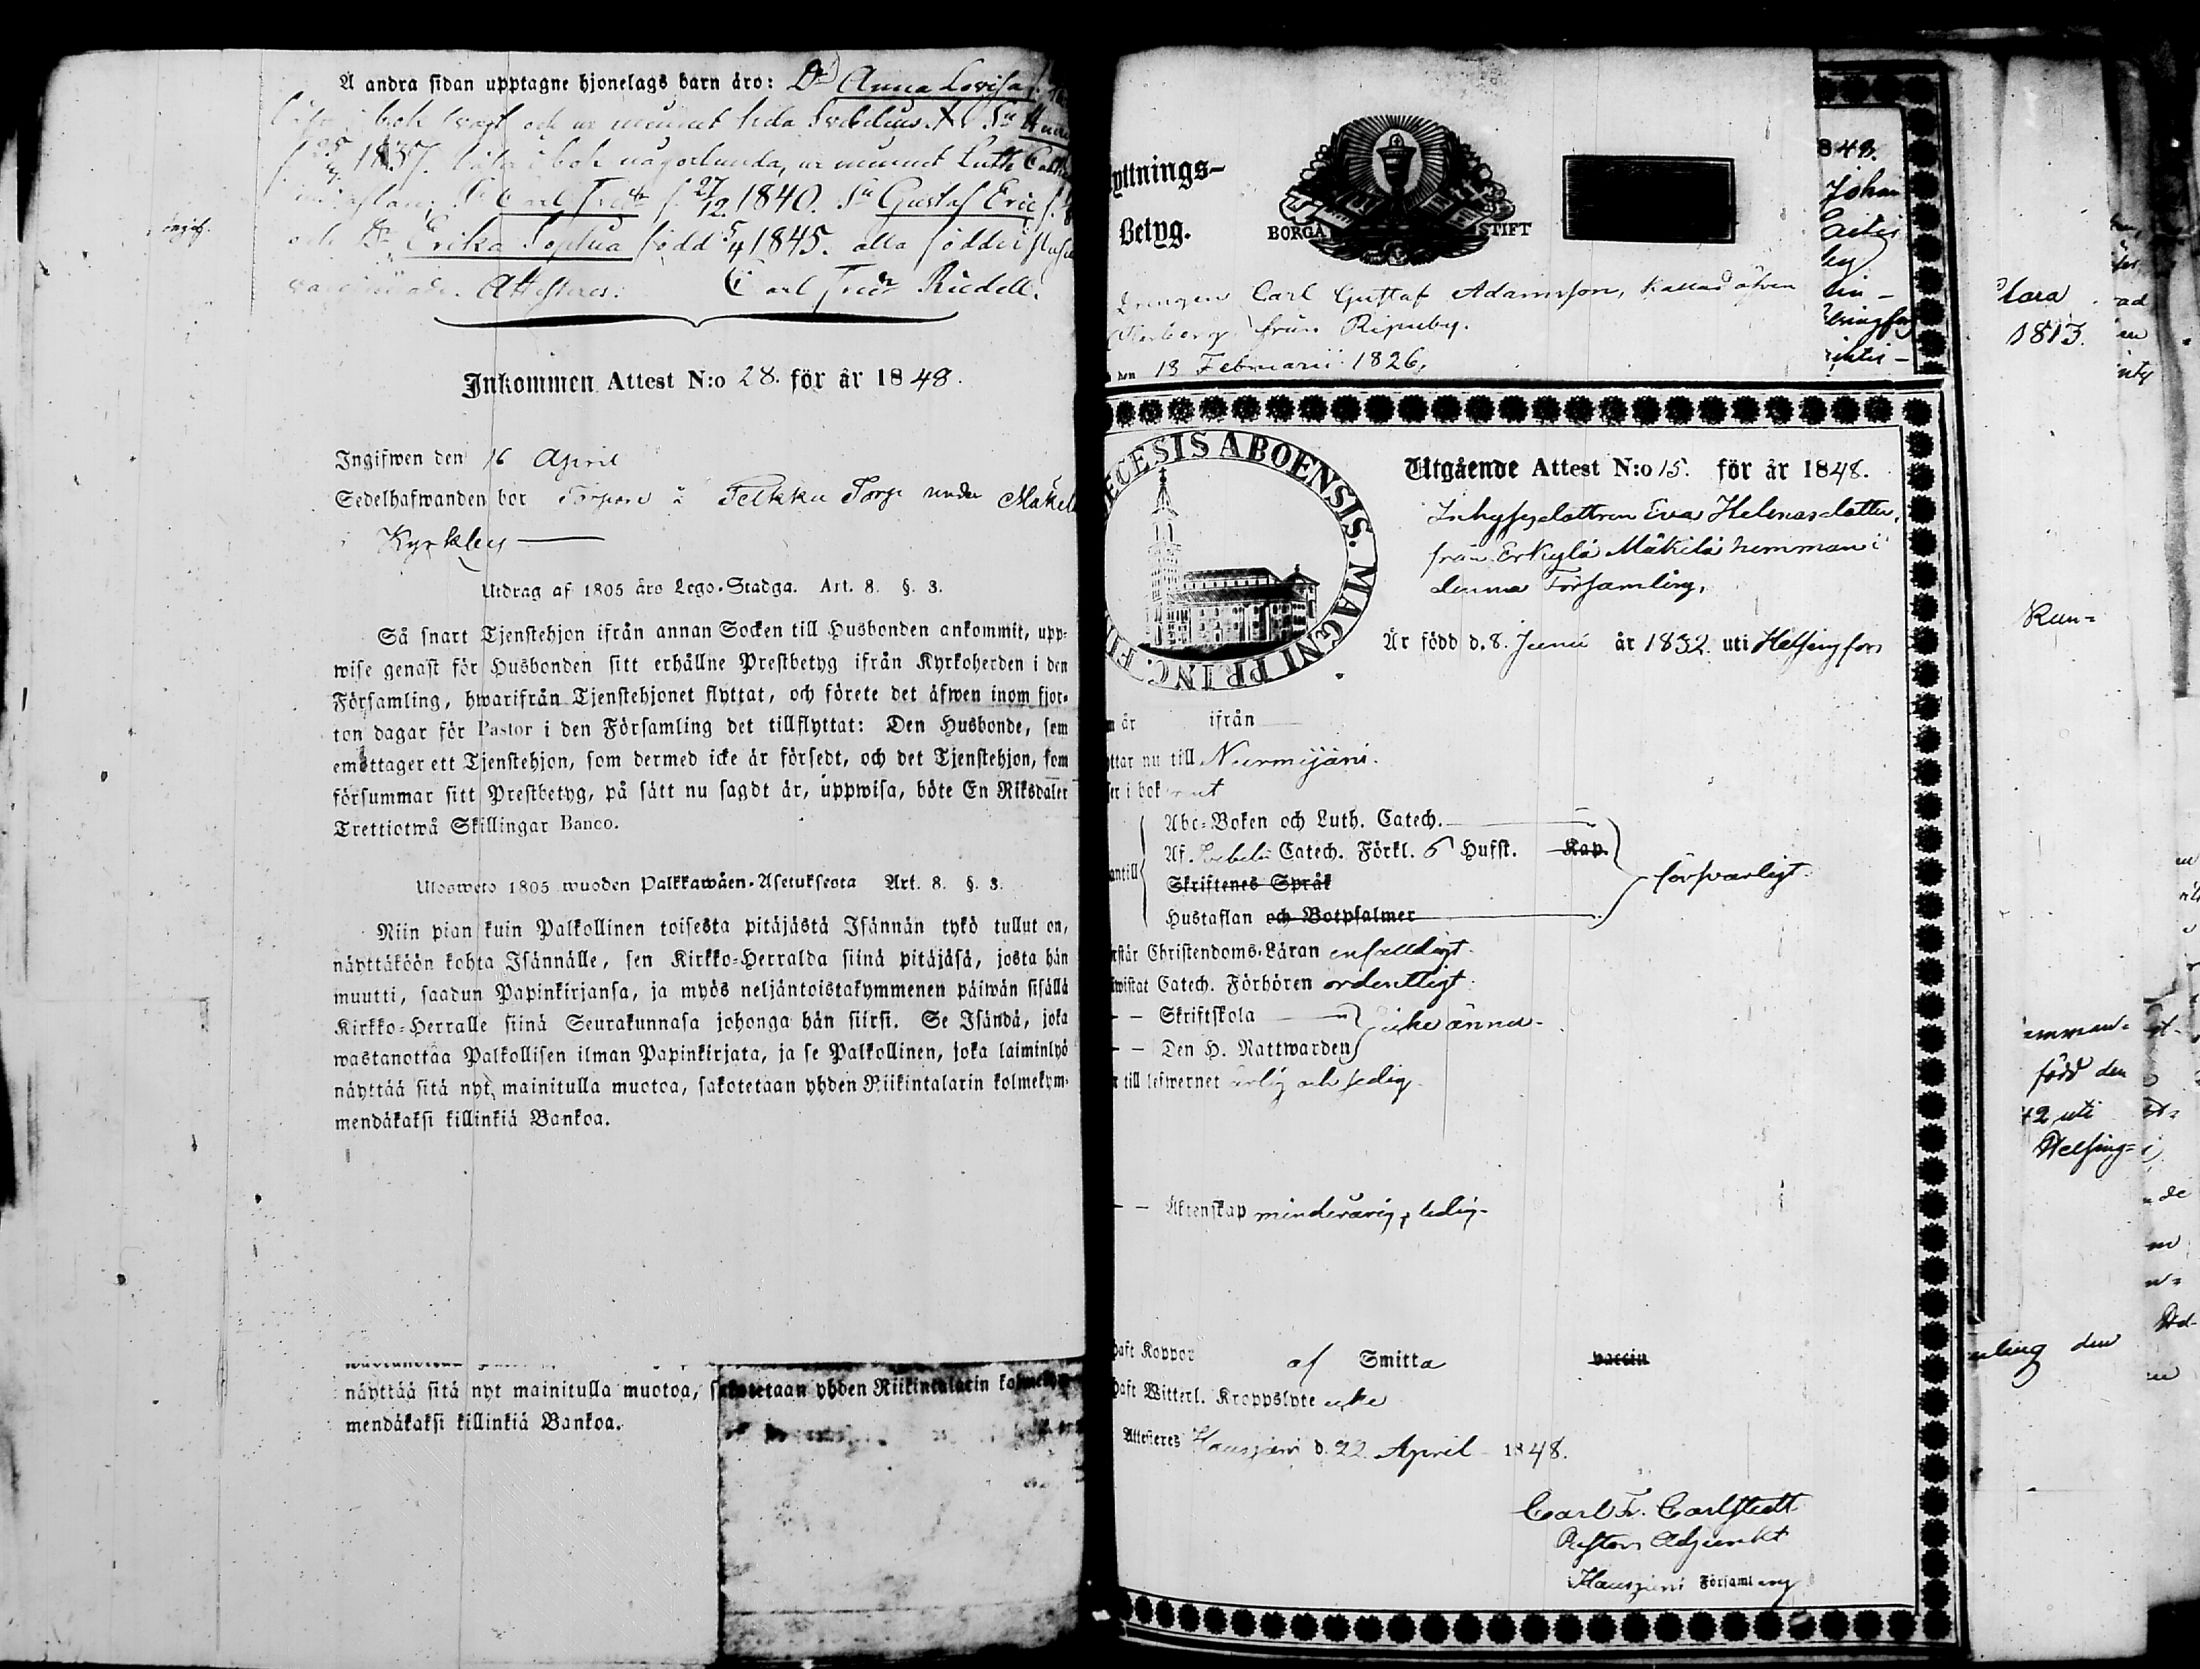 Å andra sidan upptagne hjonelags barn äro: Dr Anna Lovisa
bok svagt och ur minnet hela Svebelius. Sn
1837. läser i bok någorlunda, ur minnet Luth Cat
Sn Carl Fredr f. 27/12 1840. Sn Gustaf Eric f.
och Dr Erika Sophia född 5/4 1845. alla födde i
Attesteras: Carl Fredr Riedell.
Inkommen Attest N:o 28. för år 1848.
Ingifwen den 16 April
Sedelhafwanden bor Torpare å Torp under Mäkel
Kyrkby
Utdrag af 1805 års Lego-Stadga. Art. 8. §. 3.
Så snart Tjenstehjon ifrån annan Socken till Husbonden ankommit, upp-
wise genast för Husbonden sitt erhållne Prestbetyg ifrån Kyrkoherden i den
Församling, hwarifrån Tjenstehjonet flyttat, och förete det äfwen inom fjor-
ton dagar för Pastor i den Församling det tillflyttat: Den Husbonde, som
emottager ett Tjenstehjon, som dermed icke är försedt, och det Tjenstehjon, som
försummar sitt Prestbetyg, på sätt nu sagdt är, uppwisa, böte En Riksdaler
Trettiotwå Skillingar Banco.
Ulosweto 1805 wuoden Palkkawäen-Asetuksesta Art. 8. §. 3.
Niin pian kuin Palkollinen toisesta pitäjästä Isännän tykö tullut on,
näyttäköön kohta Isännälle, sen Kirkko-Herralda siinä pitäjäsä, josta hän
muutti, saadun Papinkirjansa, ja myös neljäntoistakymmenen päiwän sisällä
Kirkko-Herralle siinä Seurakunnasa johonga hän siirsi. Se Isändä, joka
wastanottaa Palkollisen ilman Papinkirjata, ja se Palkollinen, joka laiminlyö
näyttää sitä nyt mainitulla muotoa, sakotetaan yhden Riikintalarin kolmekym-
mendäkaksi killinkiä Bankoa.
näyttää sitä nyt mainitulla muotoa, sakotetaan yhden Riikintalarin kolmekym
mendäkaksi killinkiä Bankoa.
yttnings-
Betyg.
BORGÅ STIFT
Drengen Carl Gustaf Adamsson, kallad äfven
från Ripuby.
den 13 Februarii 1826,
1848.
Johan
ECESIS ABOENSIS. MAGNI PRINC. FI
Utgående Attest N:o 15. för år 1848.
Inhysesdottren Eva Helenasdotter,
från Erkylä Mäkilä hemman i
denna Församling,
Är född d. 8. Junii år 1832. uti Helsingfors
n år ifrån
ttar nu till Nurmijärvi.
er i bok rent
Abc-Boken och Luth. Catech.
Af Svebelii Catech. Förkl. 6 Hufst. Kap.
antill
Skriftenes Språk
försvarligt.
Hustaflan och Botpsalmer
rstår Christendoms-Läran enfaldigt.
wistat Catech. Förhören ordentligt.
- - Skriftskola
icke ännu.
- - Den H. Nattwarden
r till lefwernet ärlig och sedig.
- - Äktenskap minderårig, ledig.
haft Koppor af Smitta vaccin
haft Witterl. Kroppslyte icke
Attesteres Hausjärvi d. 22 April 1848.
Carl Fr. Carlstedt
Pastors Adjunkt
i Hausjärvi Församling
Clara
1813.
Run=
född den
42 uti
Helsing=
mling den